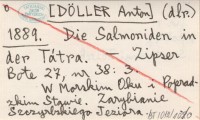 [DÖLLER Anton] (dlr.)
1889. Die Salmoniden in
der Tátra. — Zipser
Bote 27, nr 38: 3.
W Morskim Oku i Poprad-
zkim Stawie. Zarybianie
Szczyrbskiego Jeziora